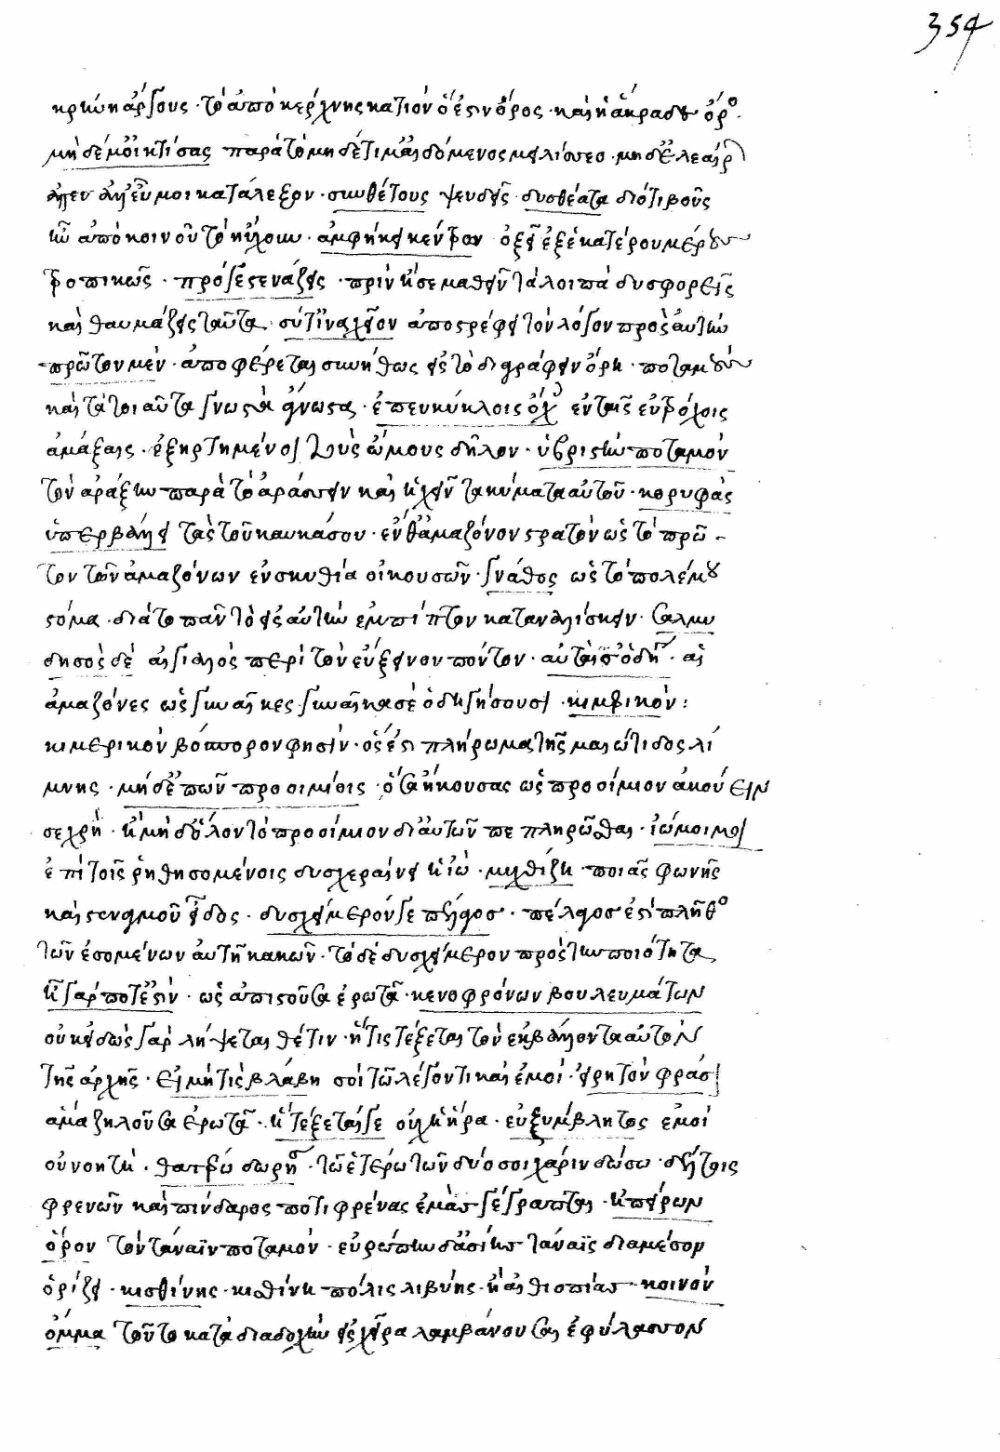 354
κρήνη ἄργους · τὸ ἀπὸ κέρχνης κατιόν ὅ ἐστιν ὄρος · καὶ ἡ ἄκρα δὲ ὄρος ·
μηδέ μοἰκτίσας παρὰ τὸ μηδέ τι μ' αἰδόμενος μειλίσσεο · μηδ' ἐλεαίρ
ἀλλ' εὖ μοι κατάλεξον · συνθέτους ψευδεῖς δυσθέατα διότι βοῦς
ἦν ἀπὸ κοινοῦ τὸ ηὔχουν · ἀμφήκει κέντρῳ ὀξεῖ ἐξ ἑκατέρου μέρους
τροπικῶς · πρό γε στενάζεις · πρὶν ἢ σε μαθεῖν τὰ λοιπὰ δυσφορεῖς
καὶ θαυμάζεις ταῦτα · σύ τ' ἰνάχειον ἀποστρέφει τὸν λόγον πρὸς αὐτὴν
πρῶτον μέν · ἀποφέρεται συνήθως εἰς τὸ διαγράφειν ὄρη · ποταμοὺς
καὶ τὰ τοιαῦτα γνωστὰ ἄγνωστα · ἐπ' εὐκύκλοις ὄχ ἐν ταῖς εὐτρόχοις
ἁμάξαις · ἐξηρτημένοι τοὺς ὤμους δῆλον · ὑβριστὴν ποταμὸν
τὸν ἀράξην παρὰ τὸ ἀράσσειν καὶ ἠχεῖν τὰ κύματα αὐτοῦ · κορυφὰς
ὑπερβάλλει τὰς τοῦ καυκάσου · ἔνθ' ἀμαζόνον στρατὸν ὡς τὸ πρῶ-
τον τῶν ἀμαζόνων ἐν σκυθία οἰκουσῶν · γνάθος ὡς τὸ πολέμου
στόμα · διὰ τὸ πᾶν τὸ εἰς αὐτὴν ἐμπίπτον καταναλίσκειν · σαλμυ
δησὸς δὲ αἰγιαλὸς περὶ τὸν εὔξεινον πόντον · αὗταί σ' ὁδηγ · αἱ
ἀμαζόνες ὡς γυναῖκες γυναῖκα σὲ ὁδηγήσουσι · κιμβικὸν :
κιμερικὸν βόσπορον φησίν · ὅς ἐστι πλήρωμα τῆς μαιώτιδος λί
μνης · μηδέπων προοιμίοις · ὅσα ἤκουσας ὡς προοίμιον ἀκούειν
σε χρή · καὶ μηδ' ὅλον τὸ προοίμιον δι' αὐτῶν πεπληρῶσθαι · ἰώ μοι μοι
ἐπὶ τοῖς ῥηθησομένοις δυσχεραίνει ἡ ἰώ · μυχθίζη ποιᾶς φωνῆς
καὶ στεναγμοῦ εἶδος · δυσχείμερόν γε πέλαγος · πέλαγος ἐστὶ πλῆθος
τῶν ἐσομένων αὐτῇ κακῶν · τὸ δὲ δυσχείμερον πρὸς τὴν ποιότητα
ἦ γάρ ποτ' ἐστίν · ὡς ἀπιστοῦσα ἐρωτᾷ · κενοφρόνων βουλευμάτων
οὐκ εἰδὼς γὰρ λήψεται θέτιν · ἥτις τέξεται τὸν ἐκβάλλοντα αὐτὸν
τῆς ἀρχῆς · εἰ μή τις βλάβη σοὶ τῶ λέγοντι καὶ ἐμοί · εἰ ῥητὸν φράσ
ἅμα ζηλοῦσα ἐρωτᾷ · ἢ τέξεται γε οὐχ ἡ ἥρα · εὐξύμβλητος ἐμοὶ
εὐνοητὴ · θατέρω δωρη · τῷ ἑτέρῳ τῶν δύο σοι χάριν δώσω · δέλτοις
φρενῶν καὶ πίνδαρος ποτὶ φρένας ἐμὰς γέγραπται · ἠπείρων
ὅρον τὸν τάναϊν ποταμὸν · εὐρώπην δ' ἀσίης τάναϊς διὰ μέσον
ὁρίζει · κισθήνης · κισθήνη πόλις λιβύης · ἢ αἰθιοπίας · κοινὸν
ὄμμα τοῦτο κατὰ διαδοχὴν εἰς χεῖρα λαμβάνουσαι ἐφύλασσον